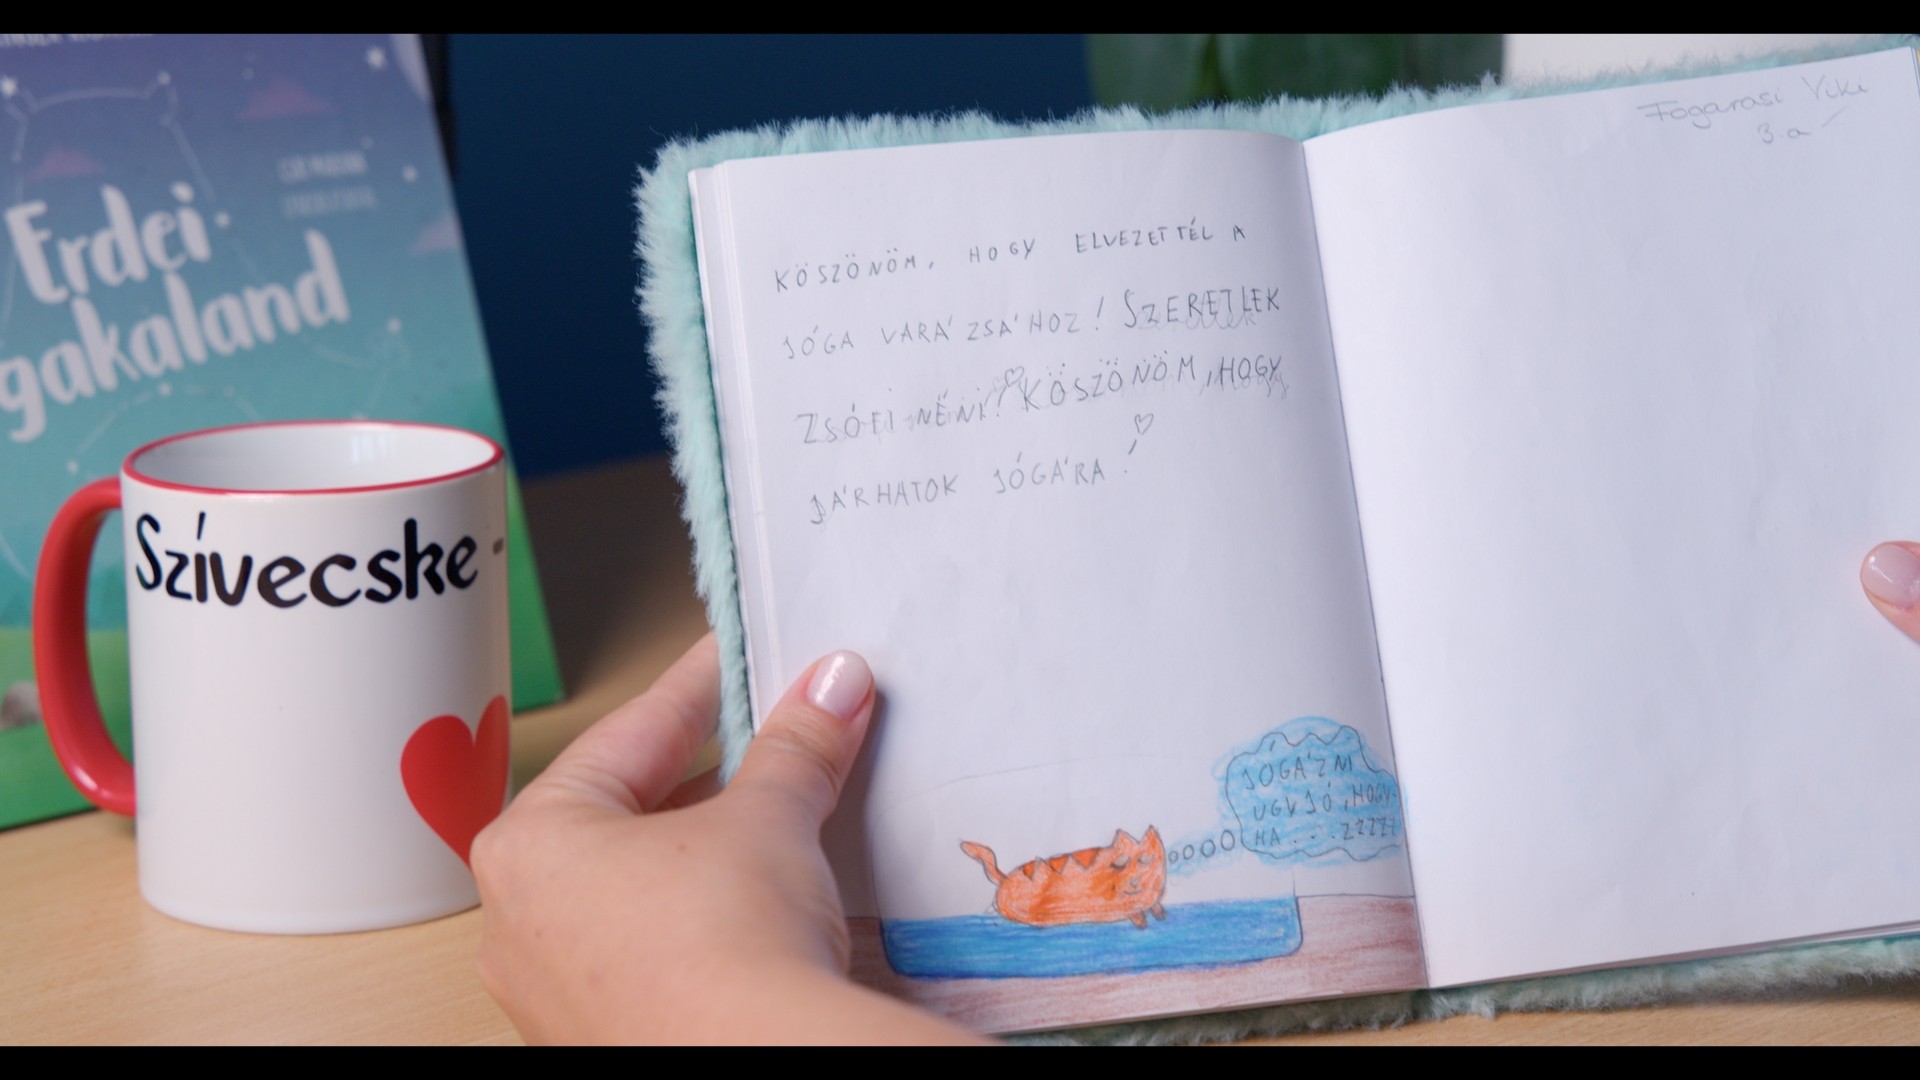 Erdei
gakaland
Szívecske -
KÖSZÖNÖM, HOGY ELVEZETTÉL A
JÓGA VARÁZSÁHOZ! SZERETLEK
ZSÓFI NÉNI! KÖSZÖNÖM, HOGY
JÁRHATOK JÓGÁRA!
JÓGÁZNI
UGY JÓ, HOGY-
HA...ZZZZZ
Fogarasi Viki
3.a